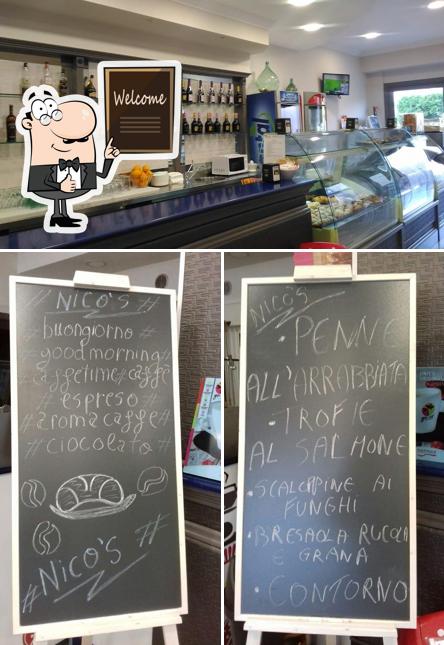 Welcome
# NICO'S #
# buongiorno #
# goodmorning #
# caffetime # caffè
# espreso #
# aroma caffe #
# ciocolato #
# NICO'S #
NICO'S
• PENNE
ALL'ARRABBIATA
• TROFIE
AL SALMONE
• SCALOPPINE AI
FUNGHI
• BRESAOLA RUCOLA
E GRANA
• CONTORNO